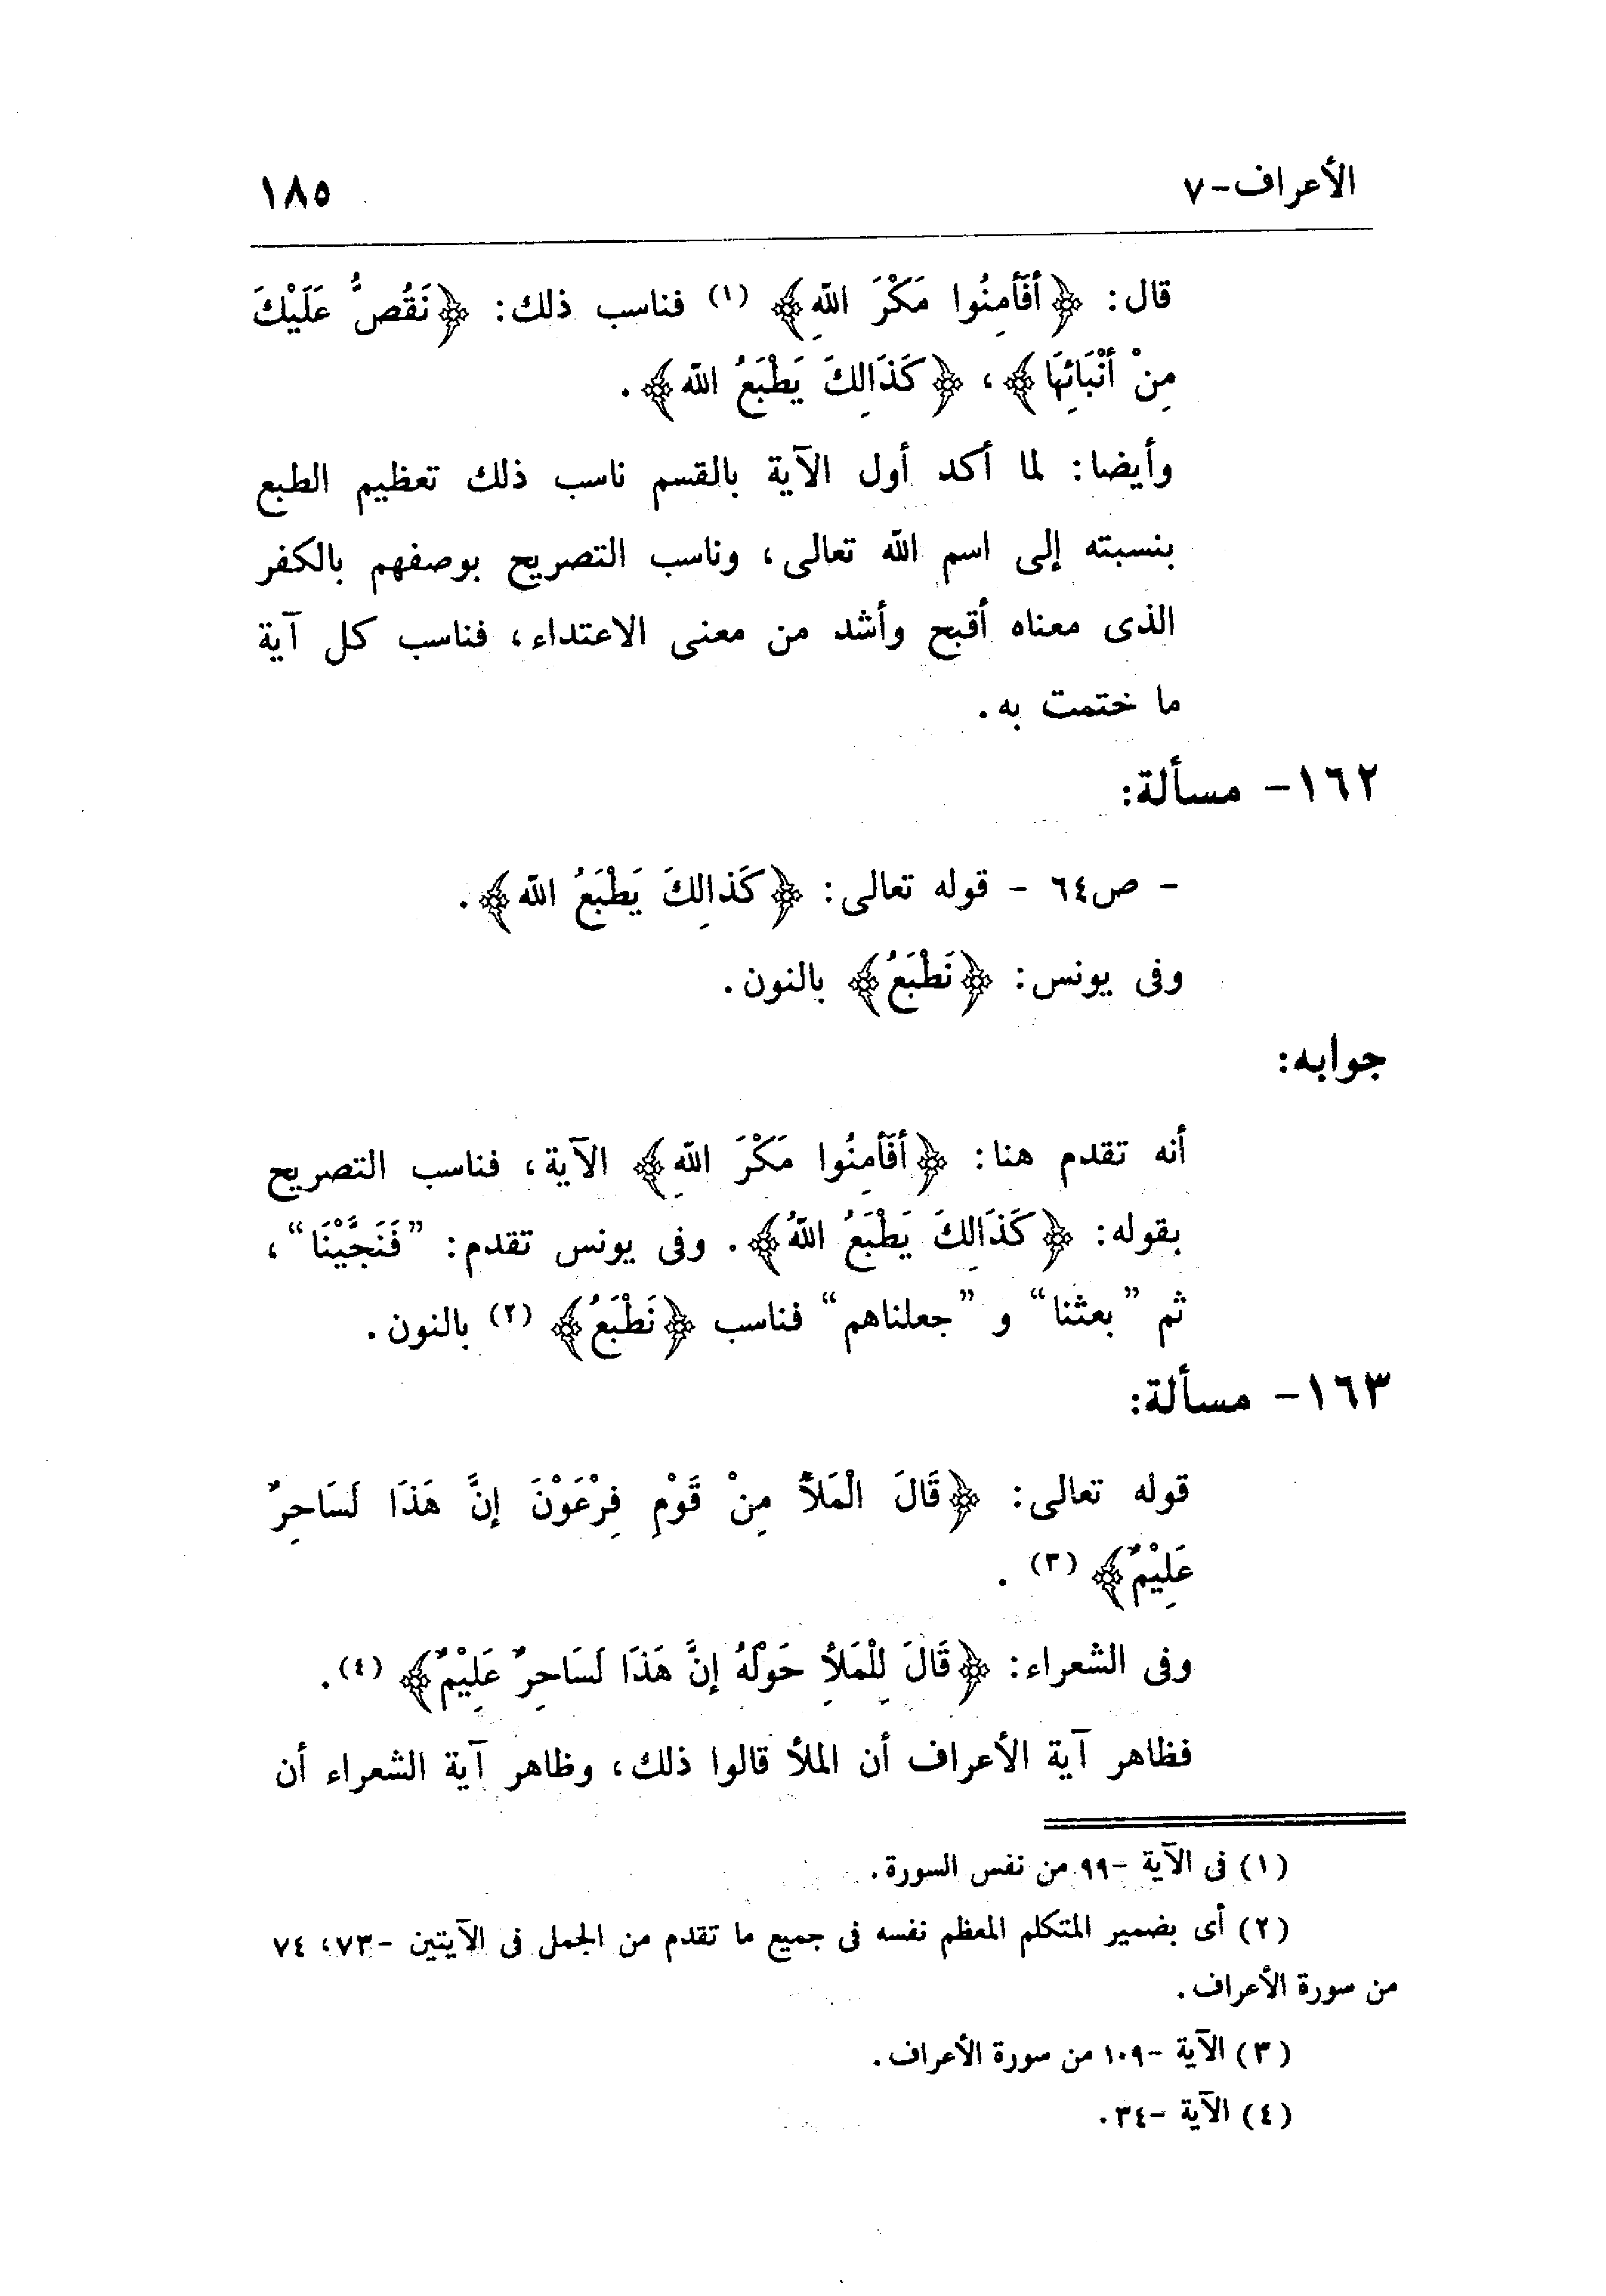 الأعراف-٧ ١٨٥
قال: ﴿أَفَأَمِنُوا مَكْرَ اللهِ﴾ (١) فناسب ذلك: ﴿نَقُصُّ عَلَيْكَ
مِنْ أَنْبَائِهَا﴾، ﴿كَذَالِكَ يَطْبَعُ الله﴾.
وأيضا: لما أكد أول الآية بالقسم ناسب ذلك تعظيم الطبع
بنسبته إلى اسم الله تعالى، وناسب التصريح بوصفهم بالكفر
الذى معناه أقبح وأشد من معنى الاعتداء، فناسب كل آية
ما ختمت به.
١٦٢- مسألة:
- ص٦٤ - قوله تعالى: ﴿كَذالِكَ يَطْبَعُ الله﴾.
وفى يونس: ﴿نَطْبَعُ﴾ بالنون.
جوابه:
أنه تقدم هنا: ﴿أَفَأَمِنُوا مَكْرَ اللهِ﴾ الآية، فناسب التصريح
بقوله: ﴿كَذَالِكَ يَطْبَعُ اللهُ﴾. وفى يونس تقدم: ”فَنَجَّيْنَا“،
ثم ”بعثنا“ و ”جعلناهم“ فناسب ﴿نَطْبَعُ﴾ (٢) بالنون.
١٦٣- مسألة:
قوله تعالى: ﴿قَالَ الْمَلَأُ مِنْ قَوْمِ فِرْعَوْنَ إِنَّ هَذَا لَسَاحِرٌ
عَلِيْمٌ﴾ (٣) .
وفى الشعراء: ﴿قَالَ لِلْمَلَأِ حَوْلَهُ إِنَّ هَذَا لَسَاحِرٌ عَلِيْمٌ﴾ (٤).
فظاهر آية الأعراف أن الملأ قالوا ذلك، وظاهر آية الشعراء أن
(١) فى الآية -٩٩ من نفس السورة.
(٢) أى بضمير المتكلم المعظم نفسه فى جميع ما تقدم من الجمل فى الآيتين -٧٣، ٧٤
من سورة الأعراف.
(٣) الآية -١٠٩ من سورة الأعراف.
(٤) الآية -٣٤.